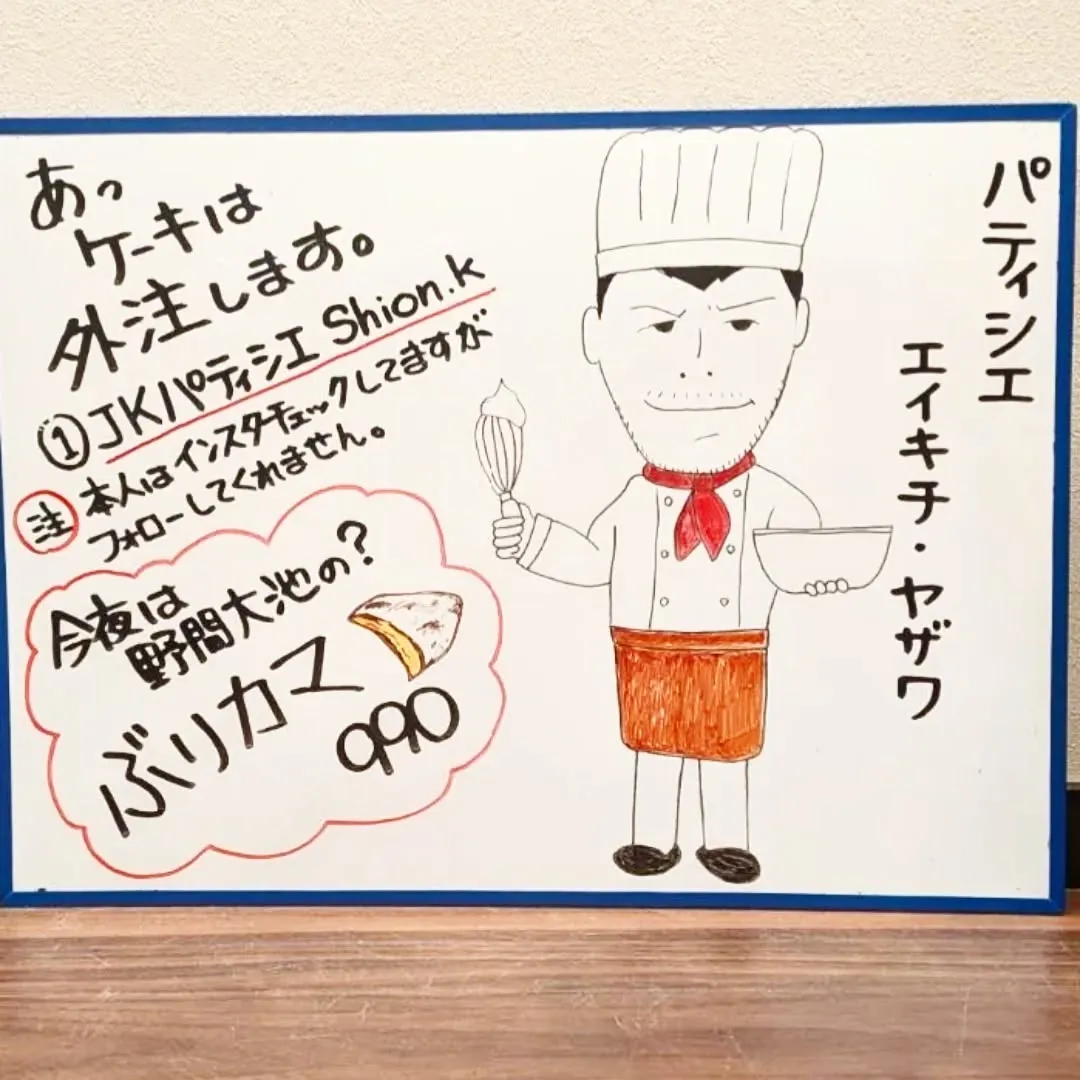 パティシエ
エイキチ・ヤザワ
あっ
ケーキは
外注します。
①JKパティシエ Shion.k
注 本人はインスタチェックしてますが
フォローしてくれません。
今夜は
野間大池の?
ぶりカマ
990